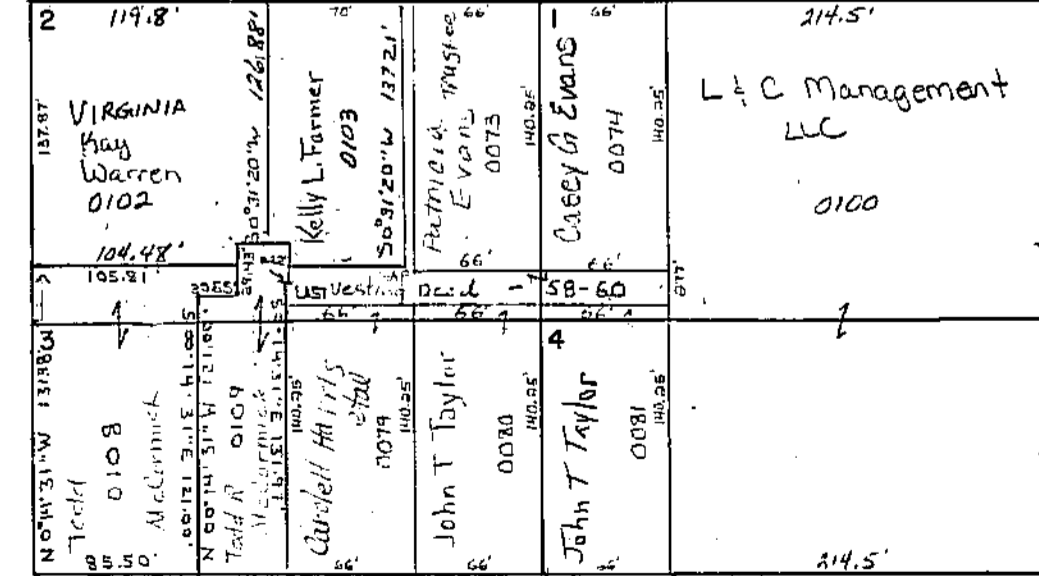 2
119.8'
137.87'
VIRGINIA
Kay
Warren
0102
S0°31'20"W 126.88'
104.48'
70'
Kelly L. Farmer
0103
S0°31'20"W 137.21'
66'
Patricia Evans Trustee
0073
140.25'
66'
1
66'
Casey G Evans
0074
140.25'
66'
214.5'
L & C Management
LLC
0100
105.81'
Vesting Deed - 58-60
66'
66'
66'
N 0°14'31"W 131.38'
Todd
0108
McCormick
S 00°14'31"E 121.00'
85.50'
Todd R
0109
McCormick
140.25'
Cardell Harris
etal
0079
140.25'
66'
John T Taylor
0080
140.25'
66'
4
John T Taylor
0081
140.25'
66'
214.5'